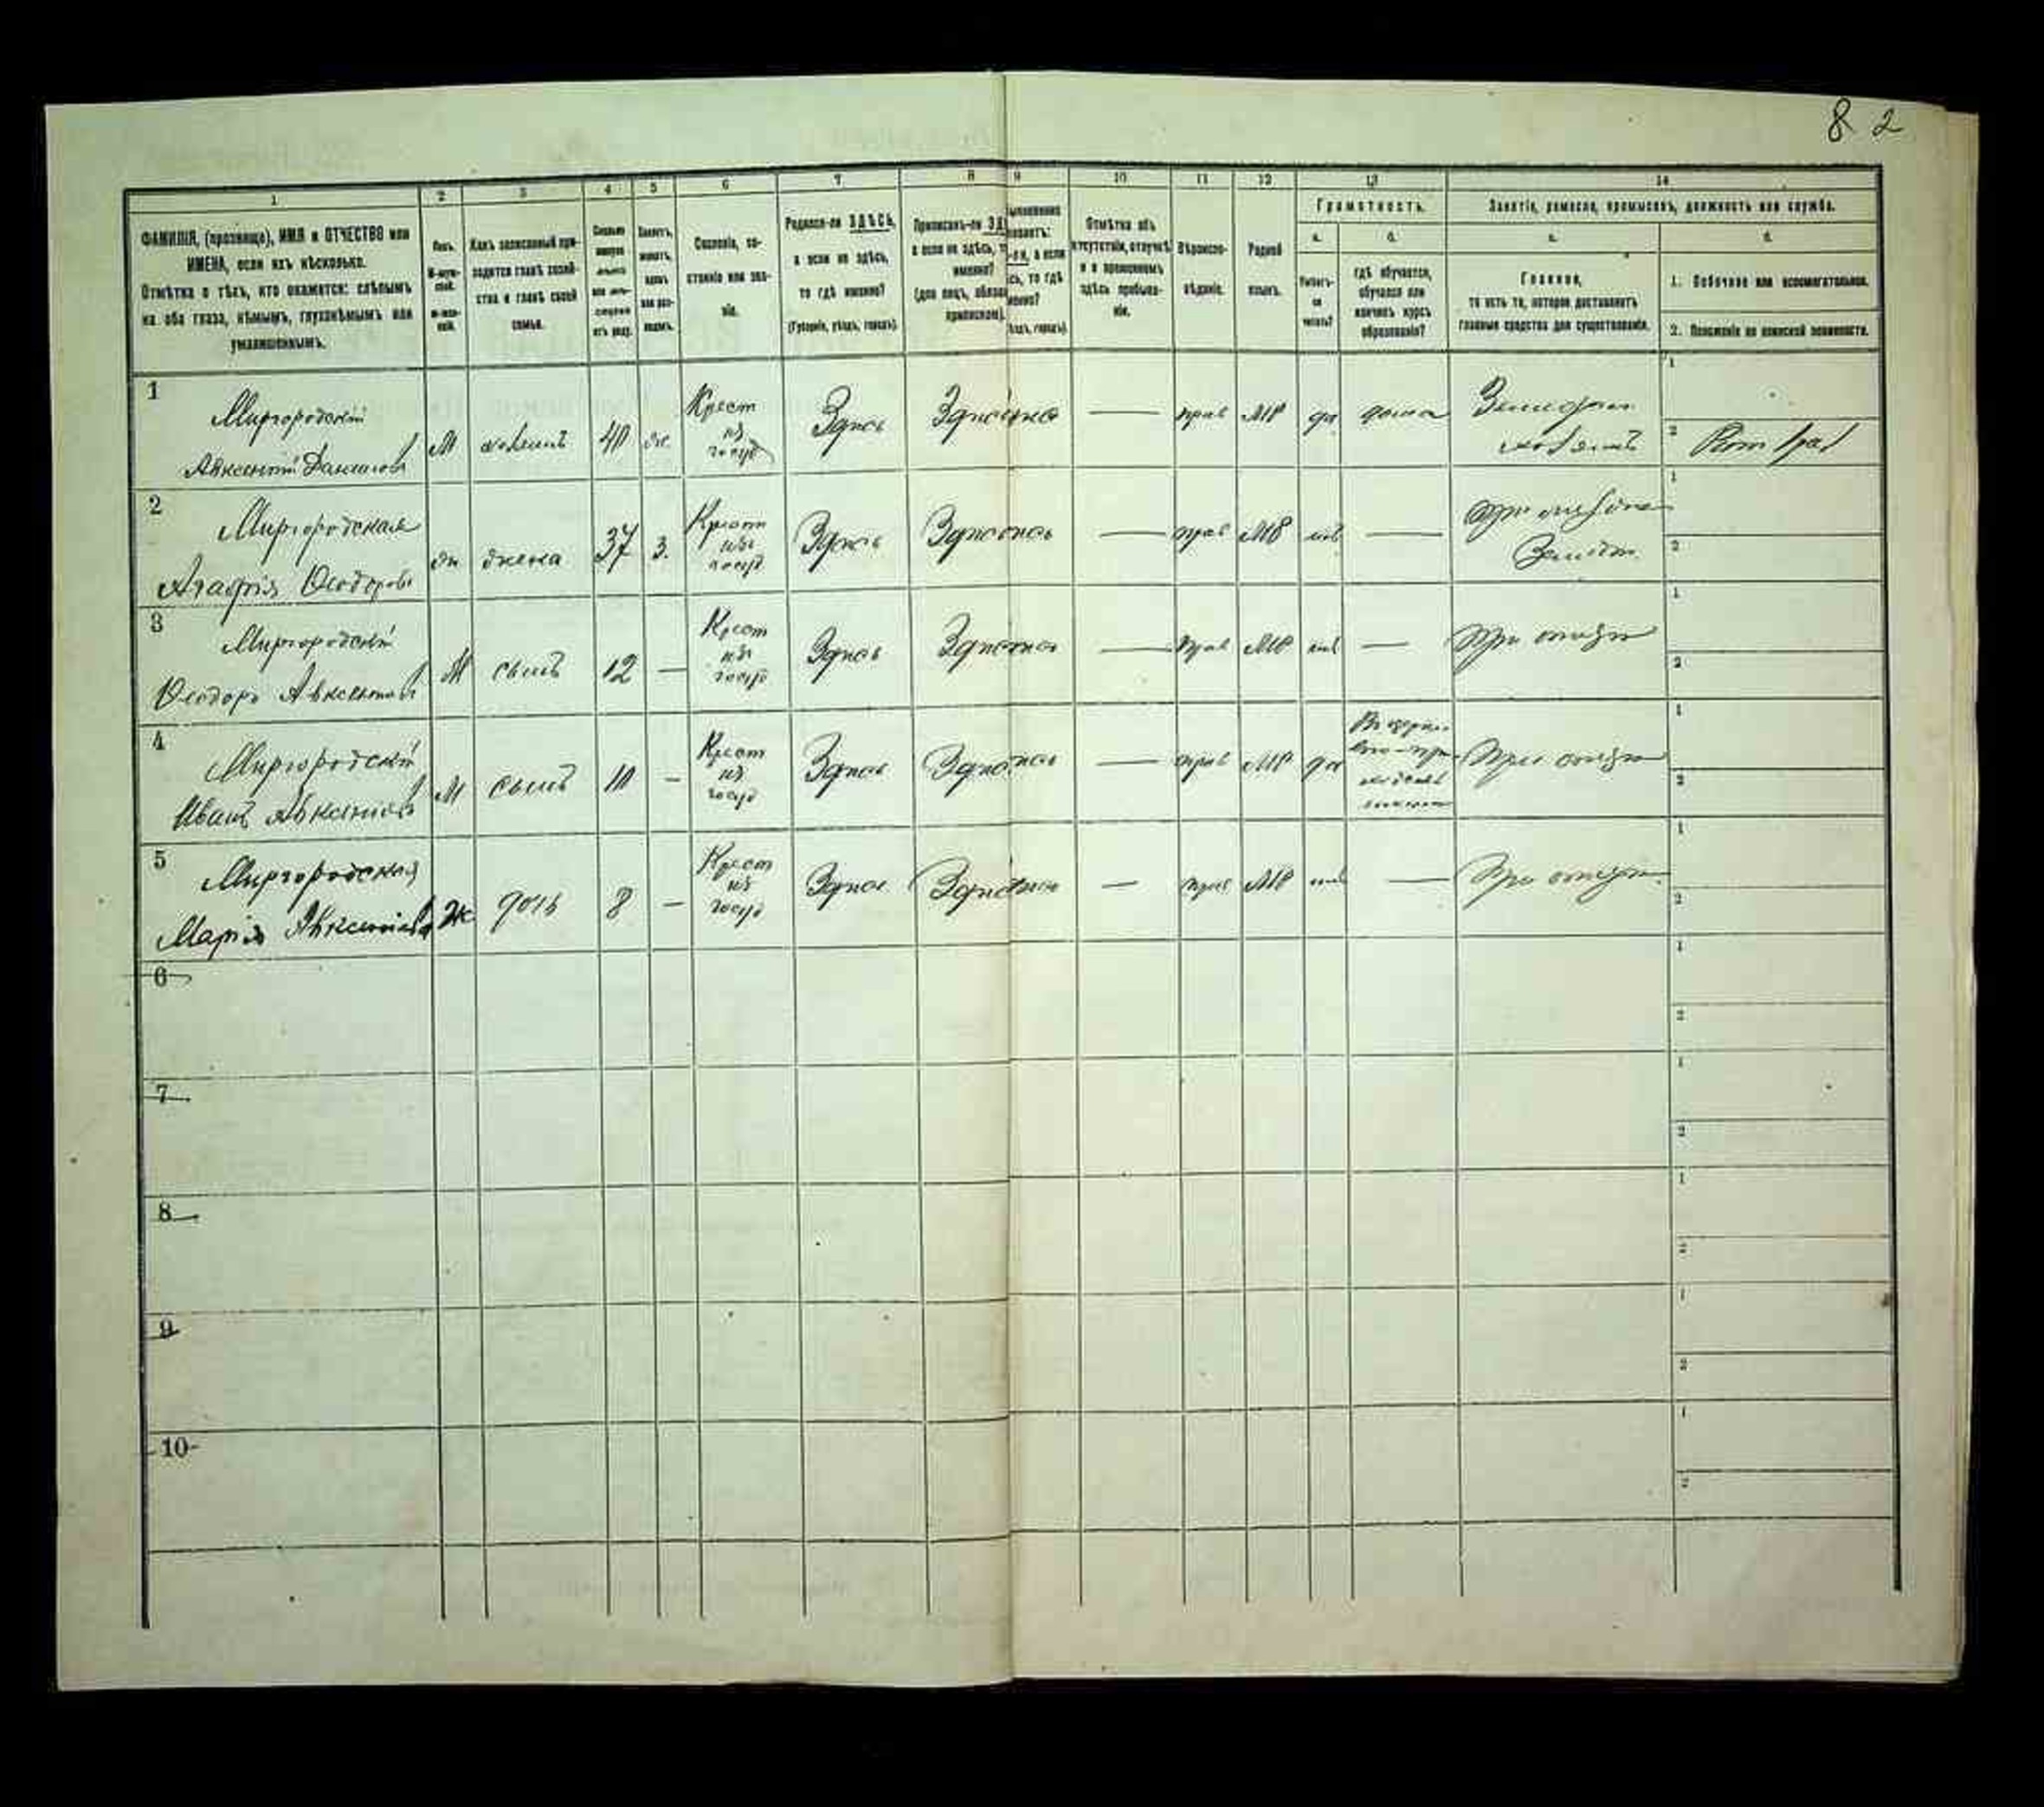 8 2
1
2
3
4
5
6
7
8
9
10
11
12
13
14
ФАМИЛІЯ, (прозвище), ИМЯ и ОТЧЕСТВО или
ИМЕНА, если ихъ нѣсколько.
Отмѣтка о тѣхъ, кто окажется: слѣпымъ
на оба глаза, нѣмымъ, глухонѣмымъ или
умалишеннымъ.
Полъ.
М-муж-
ской.
ж-жен-
скій.
Какъ записанный при-
ходится главѣ хозяй-
ства и главѣ своей
семьи.
Холостъ,
женатъ,
вдовъ
или раз-
веденъ.
Сословіе, со-
стояніе или зва-
ніе.
Родился-ли ЗДѢСЬ,
а если не здѣсь,
то гдѣ именно?
(Губернія, уѣздъ, городъ).
Приписанъ-ли
а если не здѣсь,
именно?
(для лицъ,
припискою).
то гдѣ
Отмѣтка объ
отсутствіи, отлучкѣ
и о временномъ
здѣсь пребыва-
ніи.
Вѣроиспо-
вѣданіе.
Родной
языкъ.
Грамотность.
а.
б.
Умѣетъ-
ли
читать?
гдѣ обучается,
обучался или
кончилъ курсъ
образованія?
Занятіе, ремесло, промыселъ, должность или служба.
а.
б.
Главное,
то есть то, которое доставляетъ
главныя средства для существованія.
1. Побочное или вспомогательное.
2. Положеніе по воинской повинности.
1
Миргородскій
Авксентій
М
хозяинъ
40
ж.
Крест
из
госуд
Здѣсь
—
прав
МР
да
дома
хозяинъ
1
2
2
Миргородская
Агафія Ѳеодоров
ж
жена
37
з.
Крест
изъ
госуд
Здѣсь
—
прав
МР
нѣ
—
1
2
3
Миргородскій
Ѳеодоръ Авксентіев
М
сынъ
12
—
Крест
изъ
госуд
Здѣсь
—
прав
МР
нѣ
—
При отцѣ
1
2
4
Миргородскій
Иванъ Авксентіев
М
сынъ
10
—
Крест
из
госуд
Здѣсь
—
прав
МР
да
При отцѣ
1
2
5
Миргородская
Марія Авксентіева
Ж
дочь
8
—
Крест
из
госуд
Здѣсь
—
прав
МР
нѣ
—
При отцѣ
1
2
6
1
2
7
1
2
8
1
2
9
1
2
10
1
2